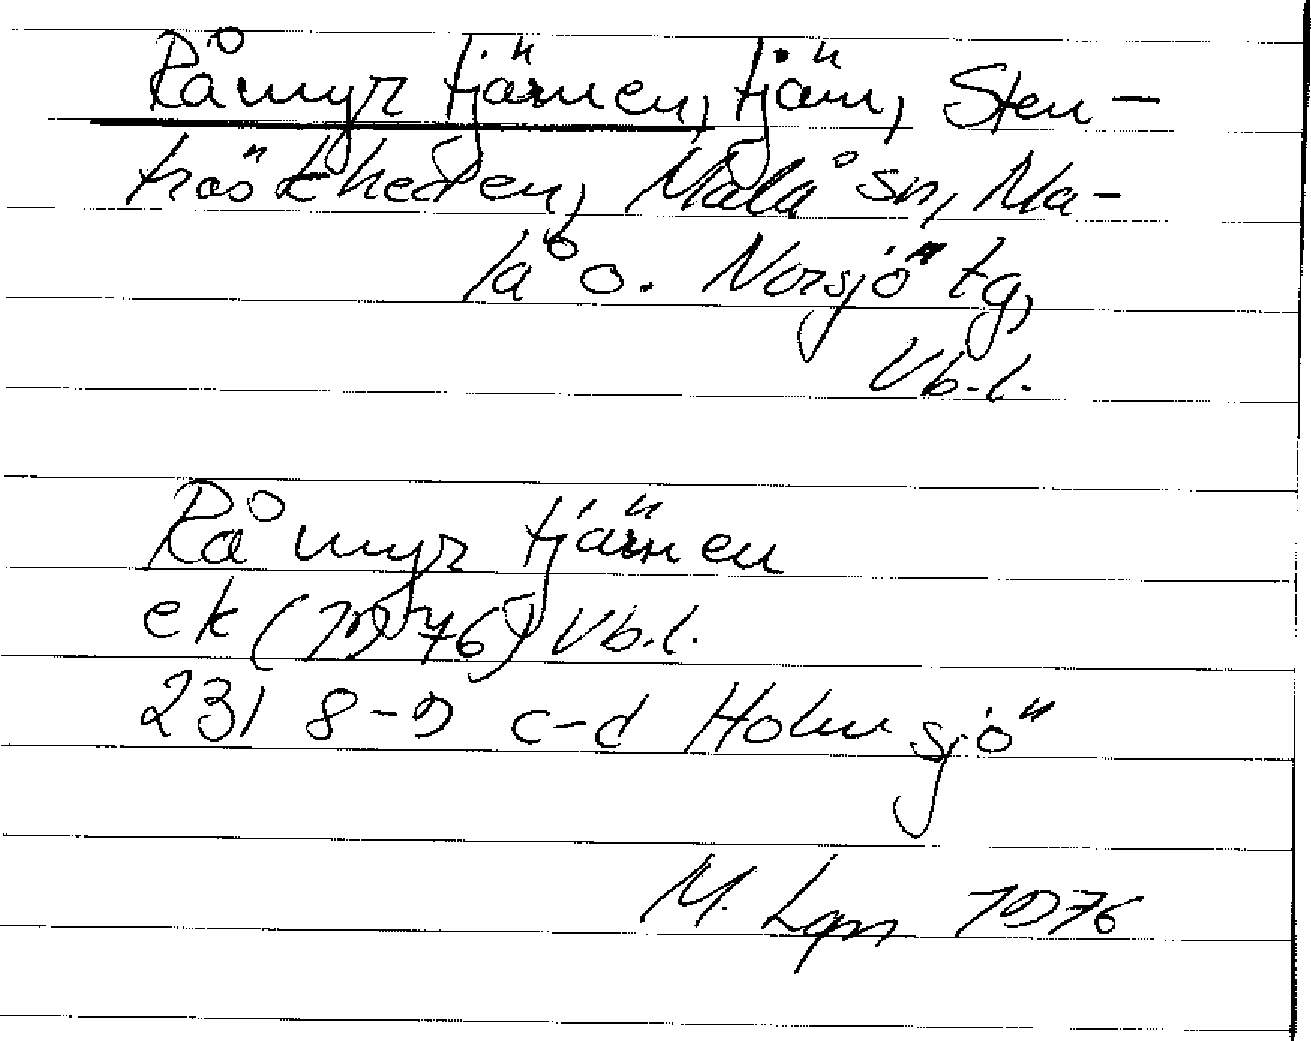 Råmyrtjärnen, tjärn, Sten-
träskheden, Malå sn, Ma-
lå o. Norsjö tg,
Vb.l.
Råmyrtjärnen
ek (1976) Vb.l.
231 8-9 c-d Holmsjö
M. Lgn 1976